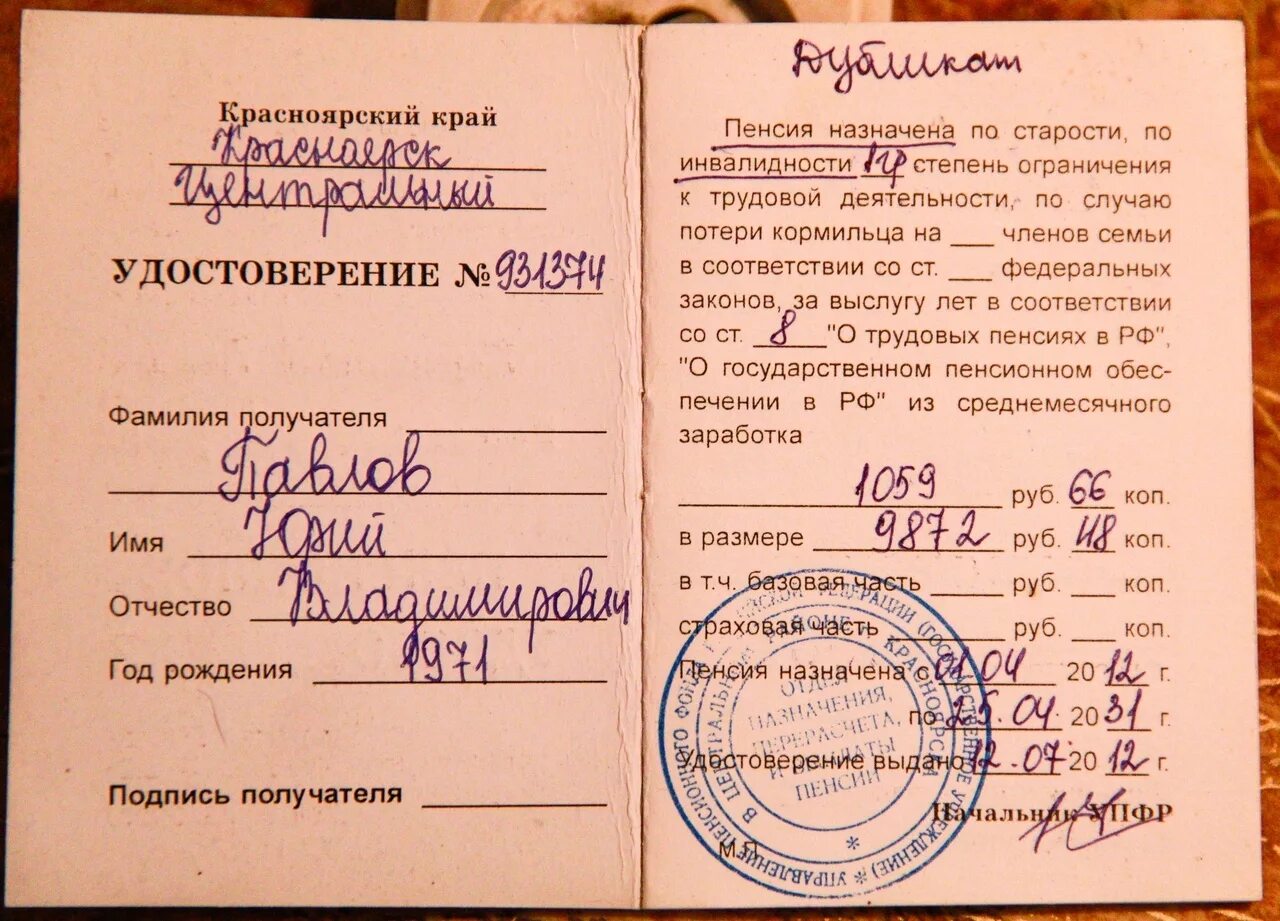 Красноярский край
Красноярск
Центральный
УДОСТОВЕРЕНИЕ № 931374
Фамилия получателя
Павлов
Имя Юрий
Отчество Владимирович
Год рождения 1971
Подпись получателя
Дубликат
Пенсия назначена по старости, по
инвалидности 1гр степень ограничения
к трудовой деятельности, по случаю
потери кормильца на ___ членов семьи
в соответствии со ст. ___ федеральных
законов, за выслугу лет в соответствии
со ст. 8 "О трудовых пенсиях в РФ",
"О государственном пенсионном обес-
печении в РФ" из среднемесячного
заработка
1059 руб. 66 коп.
в размере 9872 руб. 48 коп.
в т.ч. базовая часть ___ руб. ___ коп.
страховая часть ___ руб. ___ коп.
Пенсия назначена с 01.04 2012 г.
по 25.04 2031 г.
Удостоверение выдано 12.07 2012 г.
Начальник УПФР
М.П.
ОТДЕЛ
НАЗНАЧЕНИЯ,
ПЕРЕРАСЧЕТА
И ВЫПЛАТЫ
ПЕНСИЙ
В ЦЕНТРАЛЬНОМ РАЙОНЕ г. КРАСНОЯРСКА
(ГОСУДАРСТВЕННОЕ УЧРЕЖДЕНИЕ) * УПРАВЛЕНИЕ ПЕНСИОННОГО ФОНДА ФЕДЕРАЦИИ